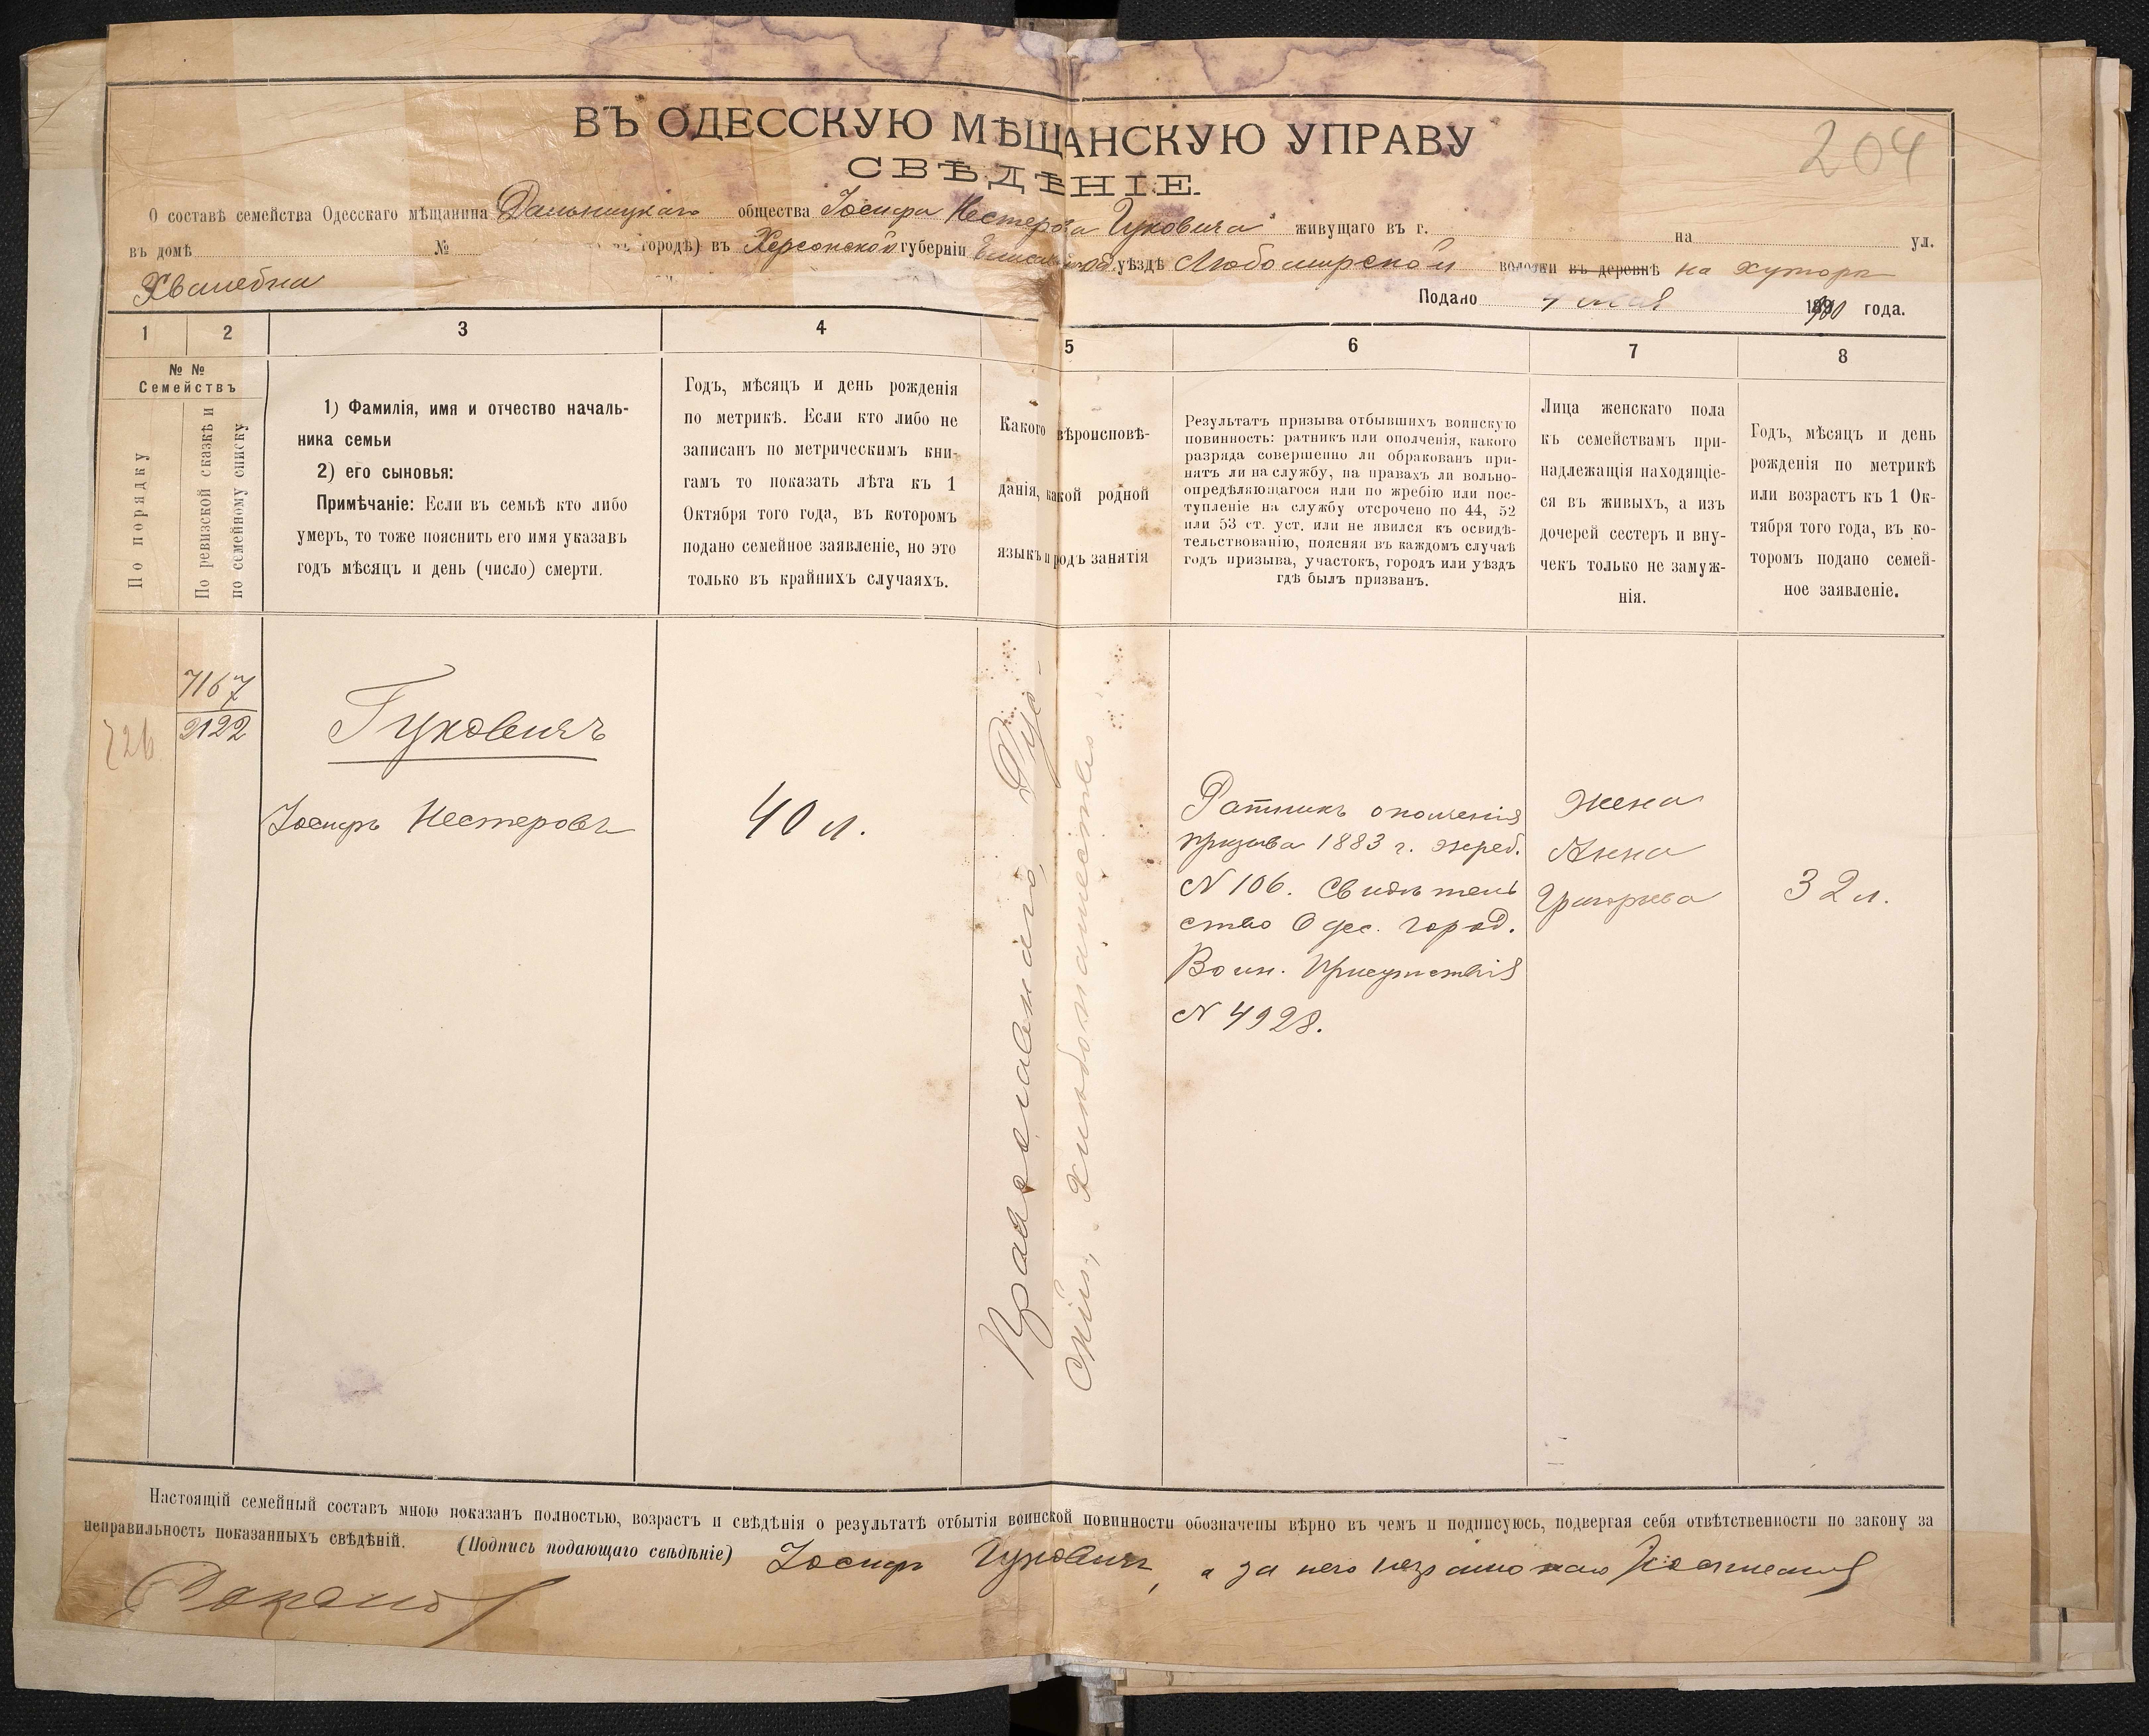 204
ВЪ ОДЕССКУЮ МѢЩАНСКУЮ УПРАВУ
СВѢДѢНІЕ.
О составѣ семейства Одесскаго мѣщанина Дальницкаго общества Іосифа Нестерова Гуковича живущаго въ г. на
въ домѣ № городѣ) въ Херсонской губерніи уѣздѣ Любомирской волости въ деревнѣ на хуторѣ ул.
Подано 4 мая 1900 года.
1 2 3 4 5 6 7 8
№ №
Семействъ
По порядку
По ревизской сказкѣ и
по семейному списку
1) Фамилія, имя и отчество началь-
ника семьи
2) его сыновья:
Примѣчаніе: Если въ семьѣ кто либо
умеръ, то тоже пояснить его имя указавъ
годъ мѣсяцъ и день (число) смерти.
Годъ, мѣсяцъ и день рожденія
по метрикѣ. Если кто либо не
записанъ по метрическимъ кни-
гамъ то показать лѣта къ 1
Октября того года, въ которомъ
подано семейное заявленіе, но это
только въ крайнихъ случаяхъ.
Какого вѣроисповѣ-
данія, какой родной
языкъ и родъ занятія
Результатъ призыва отбывшихъ воинскую
повинность: ратникъ или ополченія, какого
разряда совершенно ли обракованъ при-
нятъ ли на службу, на правахъ ли вольно-
опредѣляющагося или по жребію или пос-
тупленіе на службу отсрочено по 44, 52
или 53 ст. уст. или не явился къ освидѣ-
тельствованію, поясняя въ каждомъ случаѣ
годъ призыва, участокъ, городъ или уѣздъ
гдѣ былъ призванъ.
Лица женскаго пола
къ семействамъ при-
надлежащія находящіе-
ся въ живыхъ, а изъ
дочерей сестеръ и вну-
чекъ только не замуж-
нія.
Годъ, мѣсяцъ и день
рожденія по метрикѣ
или возрастъ къ 1 Ок-
тября того года, въ ко-
торомъ подано семей-
ное заявленіе.
726
7167
2122
Гуковичъ
Іосифъ Нестеровъ
40 л.
Православнаго, Рус-
скій, хлѣбопашествъ
Ратникъ ополченія
призыва 1883 г. жреб.
N 106. Свидѣтель
ство Одес. город.
Воин. Присутствія
N 4928.
Жена
Анна
Григорьева
32 л.
Настоящій семейный составъ мною показанъ полностью, возрастъ и свѣдѣнія о результатѣ отбытія воинской повинности обозначены вѣрно въ чемъ и подписуюсь, подвергая себя отвѣтственности по закону за
неправильность показанныхъ свѣдѣній. (Подпись подающаго свѣдѣніе) Іосифъ Гуковичъ, а за него неграмотнаго